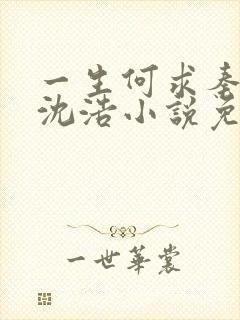 一生何求秦
沈浩小說免
一世華裳